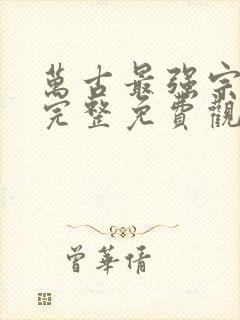 萬古最强宗
完整免費觀
曾華倩